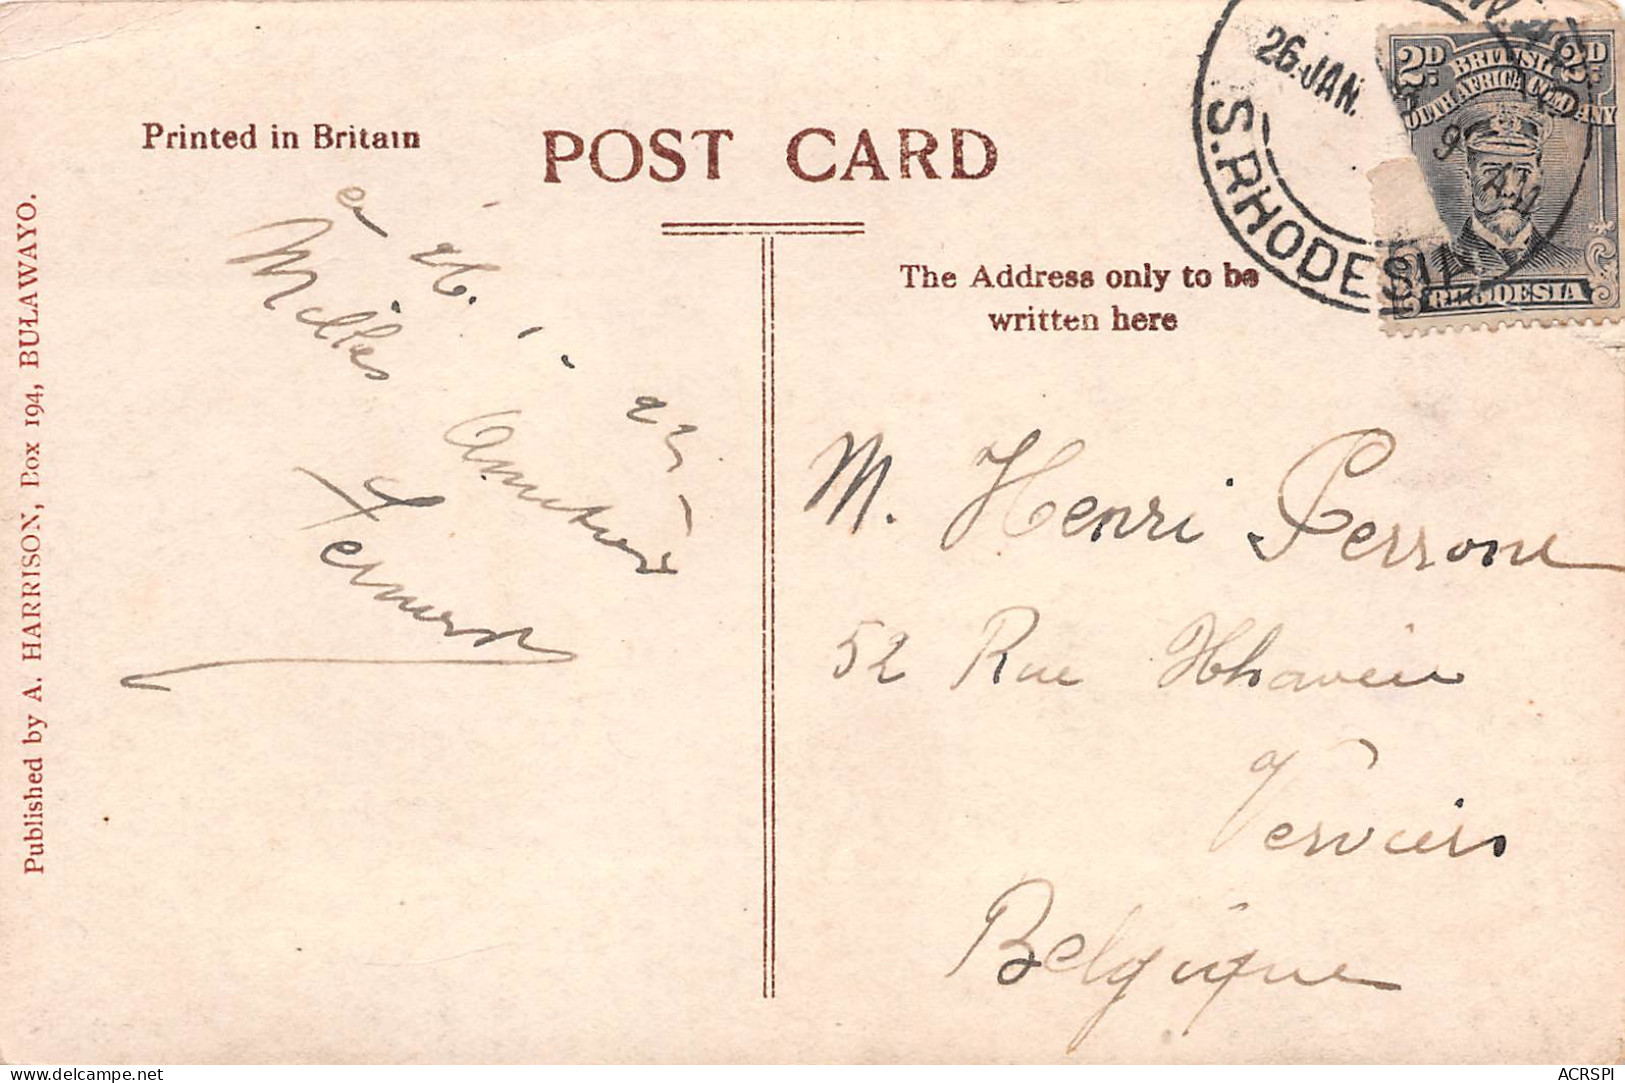 Printed in Britain
POST CARD
The Address only to be
written here
26.JAN.
9 AM
S.RHODESIA
2D 2D
BRITISH
SOUTH AFRICA COMPANY
RHODESIA
Published by A. HARRISON, Box 194, BULAWAYO.
Milles
M. Henri Perrone
52 Rue
Verviers
Belgique
delcampe.net
ACRSPI